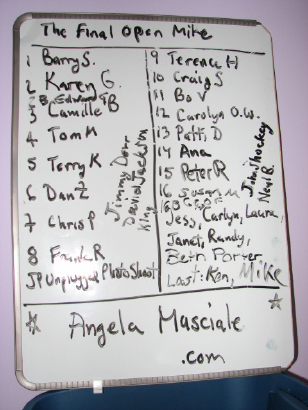 The Final Open Mike
1 Barry S.
2 Karen G.
B. Edward B
3 Camille
4 Tom M
5 Terry K
6 Dan Z
7 Chris P
8 Frank R
JP Unplugged Photo Shoot
Jimmy Dorr
David Jackson
King
9 Terence H
10 Craig S
11 Bo V
12 Carolyn O.W.
13 Patti D
14 Ana
15 Peter R
16 Susan M
John Shockey
Neal B.
Jess, Carlyn, Laura,
Janet, Randy,
Beth Porter
Last: Ken, Mike
* Angela Masciale *
.com